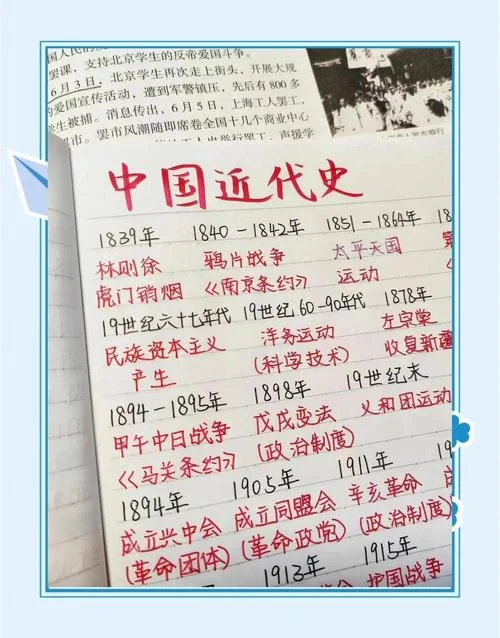 国人民的
罢课,支持北京学生的反帝爱国斗争。
6月3日,北京学生再次走上街头,开展大规
的爱国宣传活动,遭到军警镇压,先后有800多
学生被捕。消息传出,6月5日,上海工人罢工,
罢市。罢市风潮随即席卷全国十几个商业中心
举行罢工,声援学
中国近代史
1839年 1840-1842年 1851-1864年 18
林则徐 鸦片战争 太平天国
虎门销烟 《南京条约》 运动
19世纪六十七年代 19世纪60-90年代 1878年
民族资本主义 洋务运动 左宗棠
产生 (科学技术) 收复新疆
1894-1895年 1898年 19世纪末
甲午中日战争 戊戌变法 义和团运动
《马关条约》 (政治制度)
1894年 1905年 1911年
成立兴中会 成立同盟会 辛亥革命
(革命团体) (革命政党) (政治制度)
1913年 1915年
护国战争